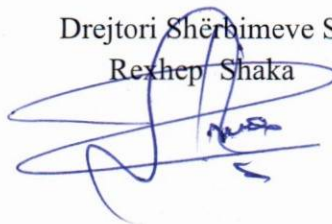 Drejtori Shërbimeve S
Rexhep Shaka